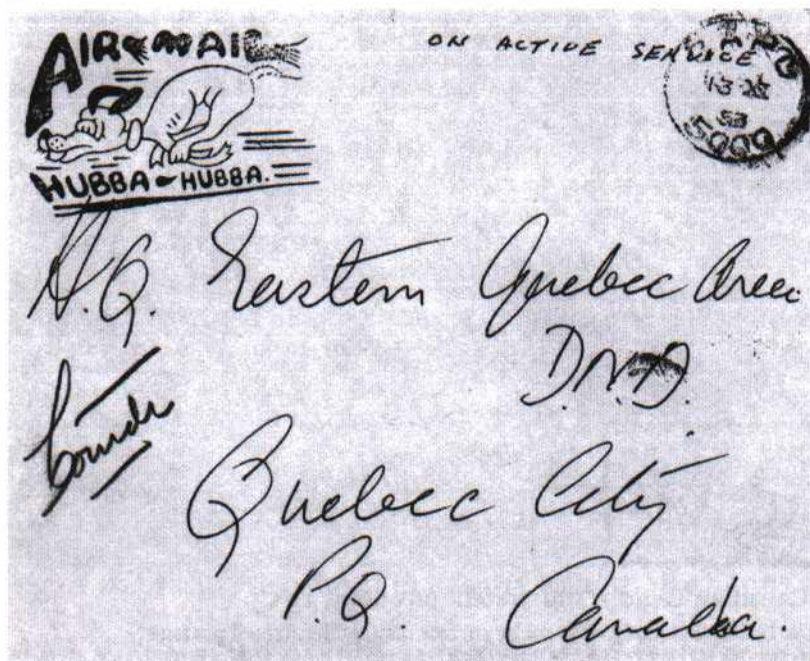 AIR MAIL
HUBBA-HUBBA.
ON ACTIVE SERVICE
53
5000
H.Q. Eastern Quebec Area
D.N.D.
Quebec City
P.Q. Canada.